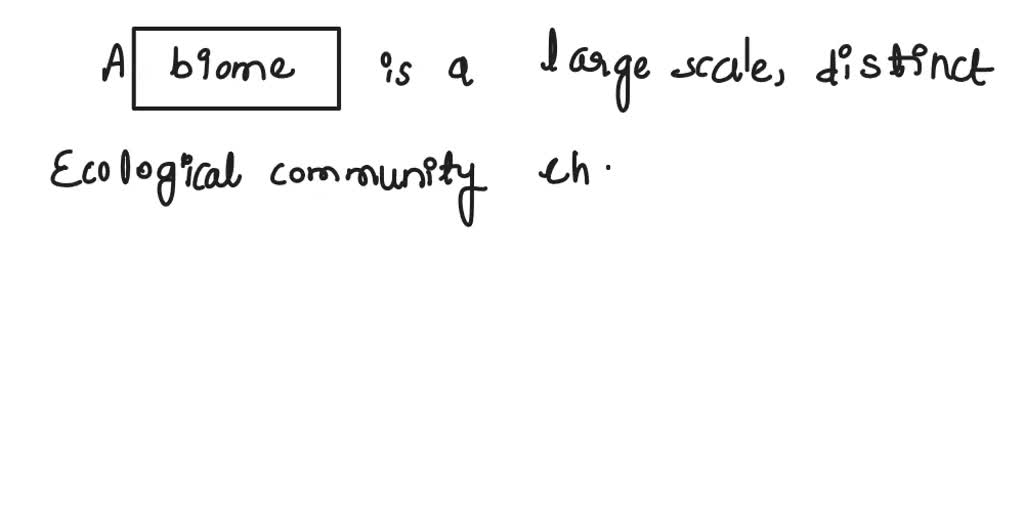 A biome is a large scale, distinct
Ecological community ch